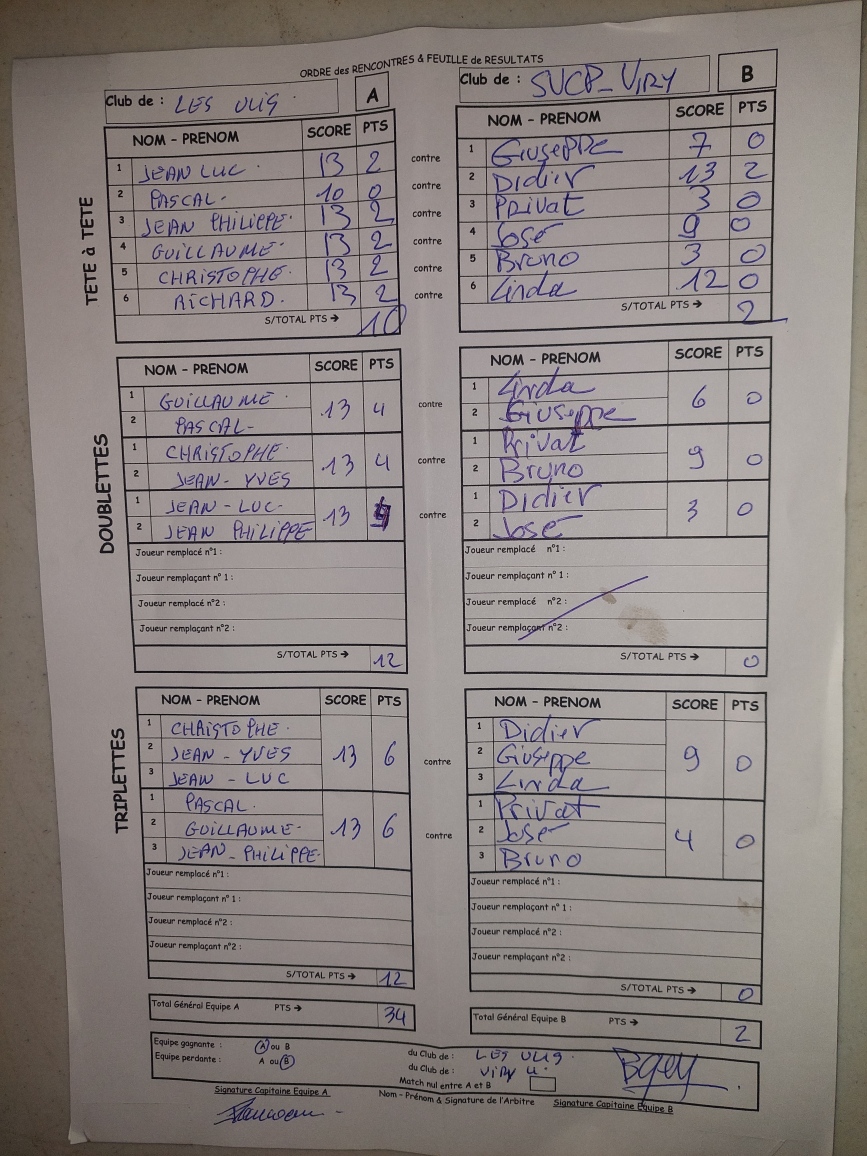 ORDRE des RENCONTRES & FEUILLE de RESULTATS
Club de : LES ULIS. A
Club de : SUCP_VIRY B
TETE à TETE
NOM - PRENOM SCORE PTS contre NOM - PRENOM SCORE PTS
1 JEAN LUC. 13 2 contre 1 Giuseppe 7 0
2 PASCAL- 10 0 contre 2 Didier 13 2
3 JEAN PHILIPPE. 13 2 contre 3 Privat 3 0
4 GUILLAUME- 13 2 contre 4 José 9 0
5 CHRISTOPHE. 13 2 contre 5 Bruno 3 0
6 RICHARD. 13 2 contre 6 Linda 12 0
S/TOTAL PTS → 10 S/TOTAL PTS → 2
DOUBLETTES
NOM - PRENOM SCORE PTS NOM - PRENOM SCORE PTS
1 GUILLAUME. 1 Linda
2 PASCAL- 13 4 contre 2 Giuseppe 6 0
1 CHRISTOPHE. 1 Privat
2 JEAN-YVES 13 4 contre 2 Bruno 9 0
1 JEAN-LUC- 1 Didier
2 JEAN PHILIPPE 13 4 contre 2 José 3 0
Joueur remplacé n°1 : Joueur remplacé n°1 :
Joueur remplaçant n°1 : Joueur remplaçant n°1 :
Joueur remplacé n°2 : Joueur remplacé n°2 :
Joueur remplaçant n°2 : Joueur remplaçant n°2 :
S/TOTAL PTS → 12 S/TOTAL PTS → 0
TRIPLETTES
NOM - PRENOM SCORE PTS NOM - PRENOM SCORE PTS
1 CHRISTOPHE. 1 Didier
2 JEAN-YVES 13 6 contre 2 Giuseppe 9 0
3 JEAN-LUC 3 Linda
1 PASCAL. 1 Privat
2 GUILLAUME- 13 6 contre 2 José 4 0
3 JEAN-PHILIPPE. 3 Bruno
Joueur remplacé n°1 : Joueur remplacé n°1 :
Joueur remplaçant n°1 : Joueur remplaçant n°1 :
Joueur remplacé n°2 : Joueur remplacé n°2 :
Joueur remplaçant n°2 : Joueur remplaçant n°2 :
S/TOTAL PTS → 12 S/TOTAL PTS → 0
Total Général Equipe A PTS → 34 Total Général Equipe B PTS → 2
Equipe gagnante : A ou B du Club de : LES ULIS.
Equipe perdante : A ou B du Club de : VIRY
Match nul entre A et B
Signature Capitaine Equipe A Nom - Prénom & Signature de l'Arbitre Signature Capitaine Equipe B